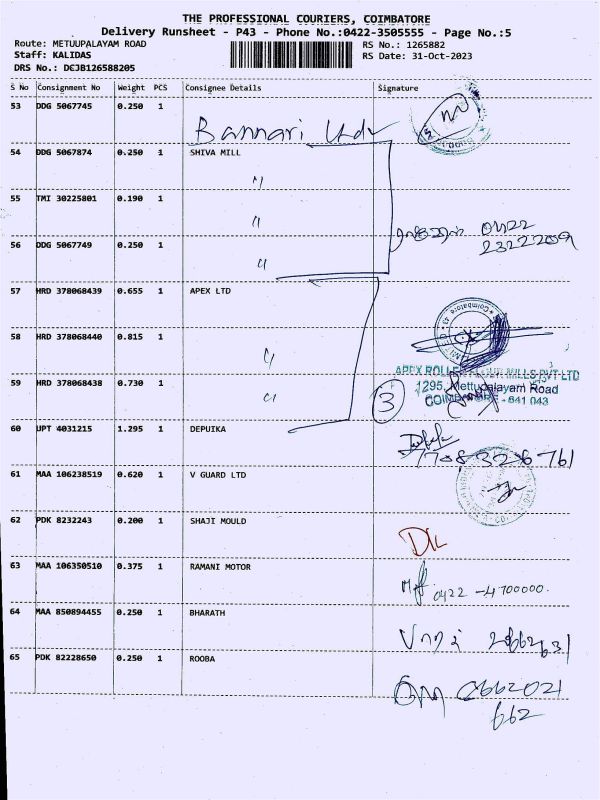 THE PROFESSIONAL COURIERS, COIMBATORE
Delivery Runsheet - P43 - Phone No.:0422-3505555 - Page No.:5
Route: METUUPALAYAM ROAD
RS No.: 1265882
Staff: KALIDAS
RS Date: 31-Oct-2023
DRS No.: DCJB126588205
S No Consignment No Weight PCS Consignee Details Signature
53 DDG 5067745 0.250 1 Bannari
54 DDG 5067874 0.250 1 SHIVA MILL
55 TMI 30225801 0.190 1 "
56 DDG 5067749 0.250 1 " 0422
2322209
57 HRD 378068439 0.655 1 APEX LTD
58 HRD 378068440 0.815 1 "
APEX ROLLER FLOUR MILLS PVT LTD
59 HRD 378068438 0.730 1 " 3 1295, Mettupalayam Road
COIMBATORE - 641 043
60 UPT 4031215 1.295 1 DEPUIKA
7708326761
61 MAA 106238519 0.620 1 V GUARD LTD
62 PDK 8232243 0.200 1 SHAJI MOULD
63 MAA 106350510 0.375 1 RAMANI MOTOR 0422 -4700000.
64 MAA 850894455 0.250 1 BHARATH
65 PDK 82228650 0.250 1 ROOBA
662